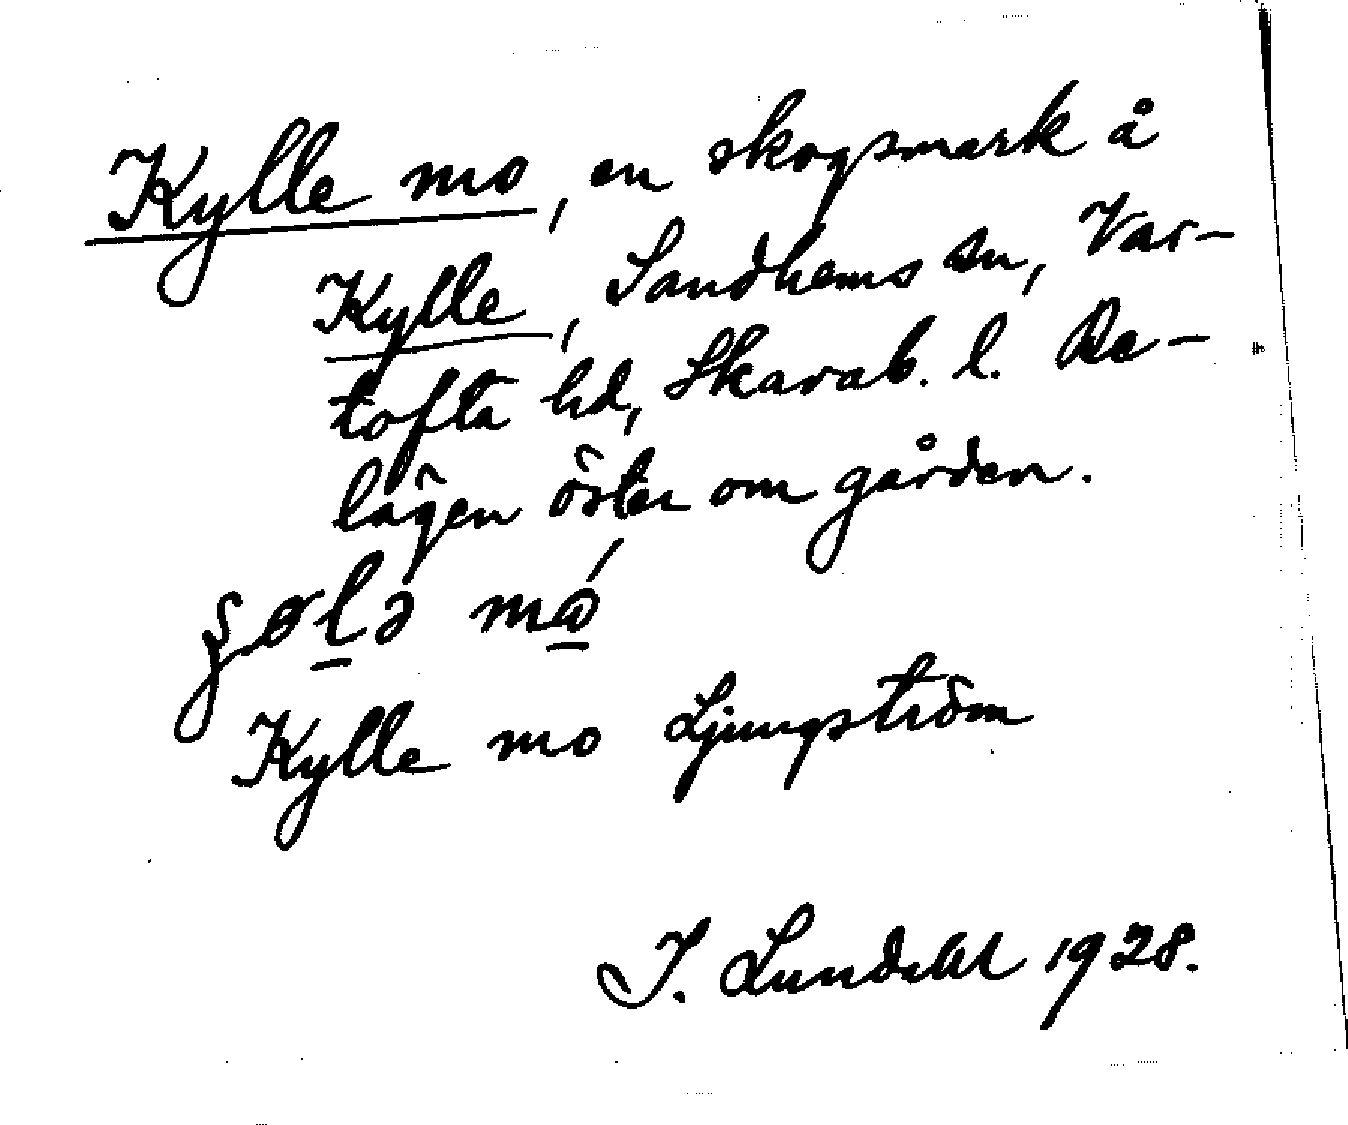 Kylle mo, en skogsmark å
Kylle, Sandhems sn, Var-
tofta hd, Skarab. l. Be-
lägen öster om gården.
mo
Kylle mo Ljungström
I. Lundahl 1928.